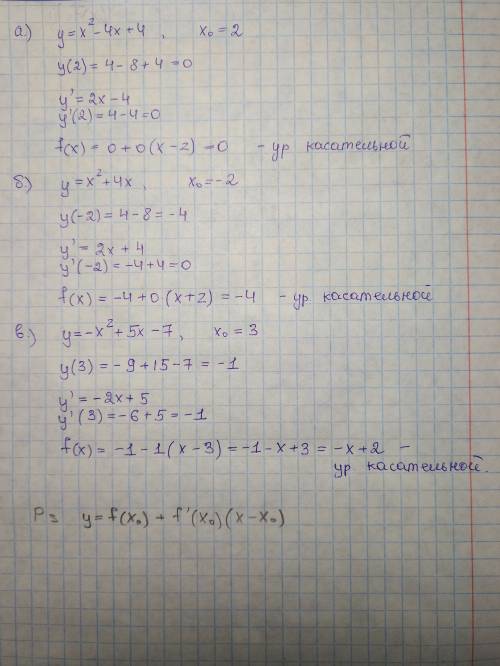 а) y=x²-4x+4, x₀=2
y(2)=4-8+4=0
y'=2x-4
y'(2)=4-4=0
f(x)=0+0(x-2)=0 - ур касательной
б.) y=x²+4x, x₀=-2
y(-2)=4-8=-4
y'=2x+4
y'(-2)=-4+4=0
f(x)=-4+0(x+2)=-4 - ур касательной
в.) y=-x²+5x-7, x₀=3
y(3)=-9+15-7=-1
y'=-2x+5
y'(3)=-6+5=-1
f(x)=-1-1(x-3)=-1-x+3=-x+2 -
ур касательной.
P.s y=f(x₀)+f'(x₀)(x-x₀)